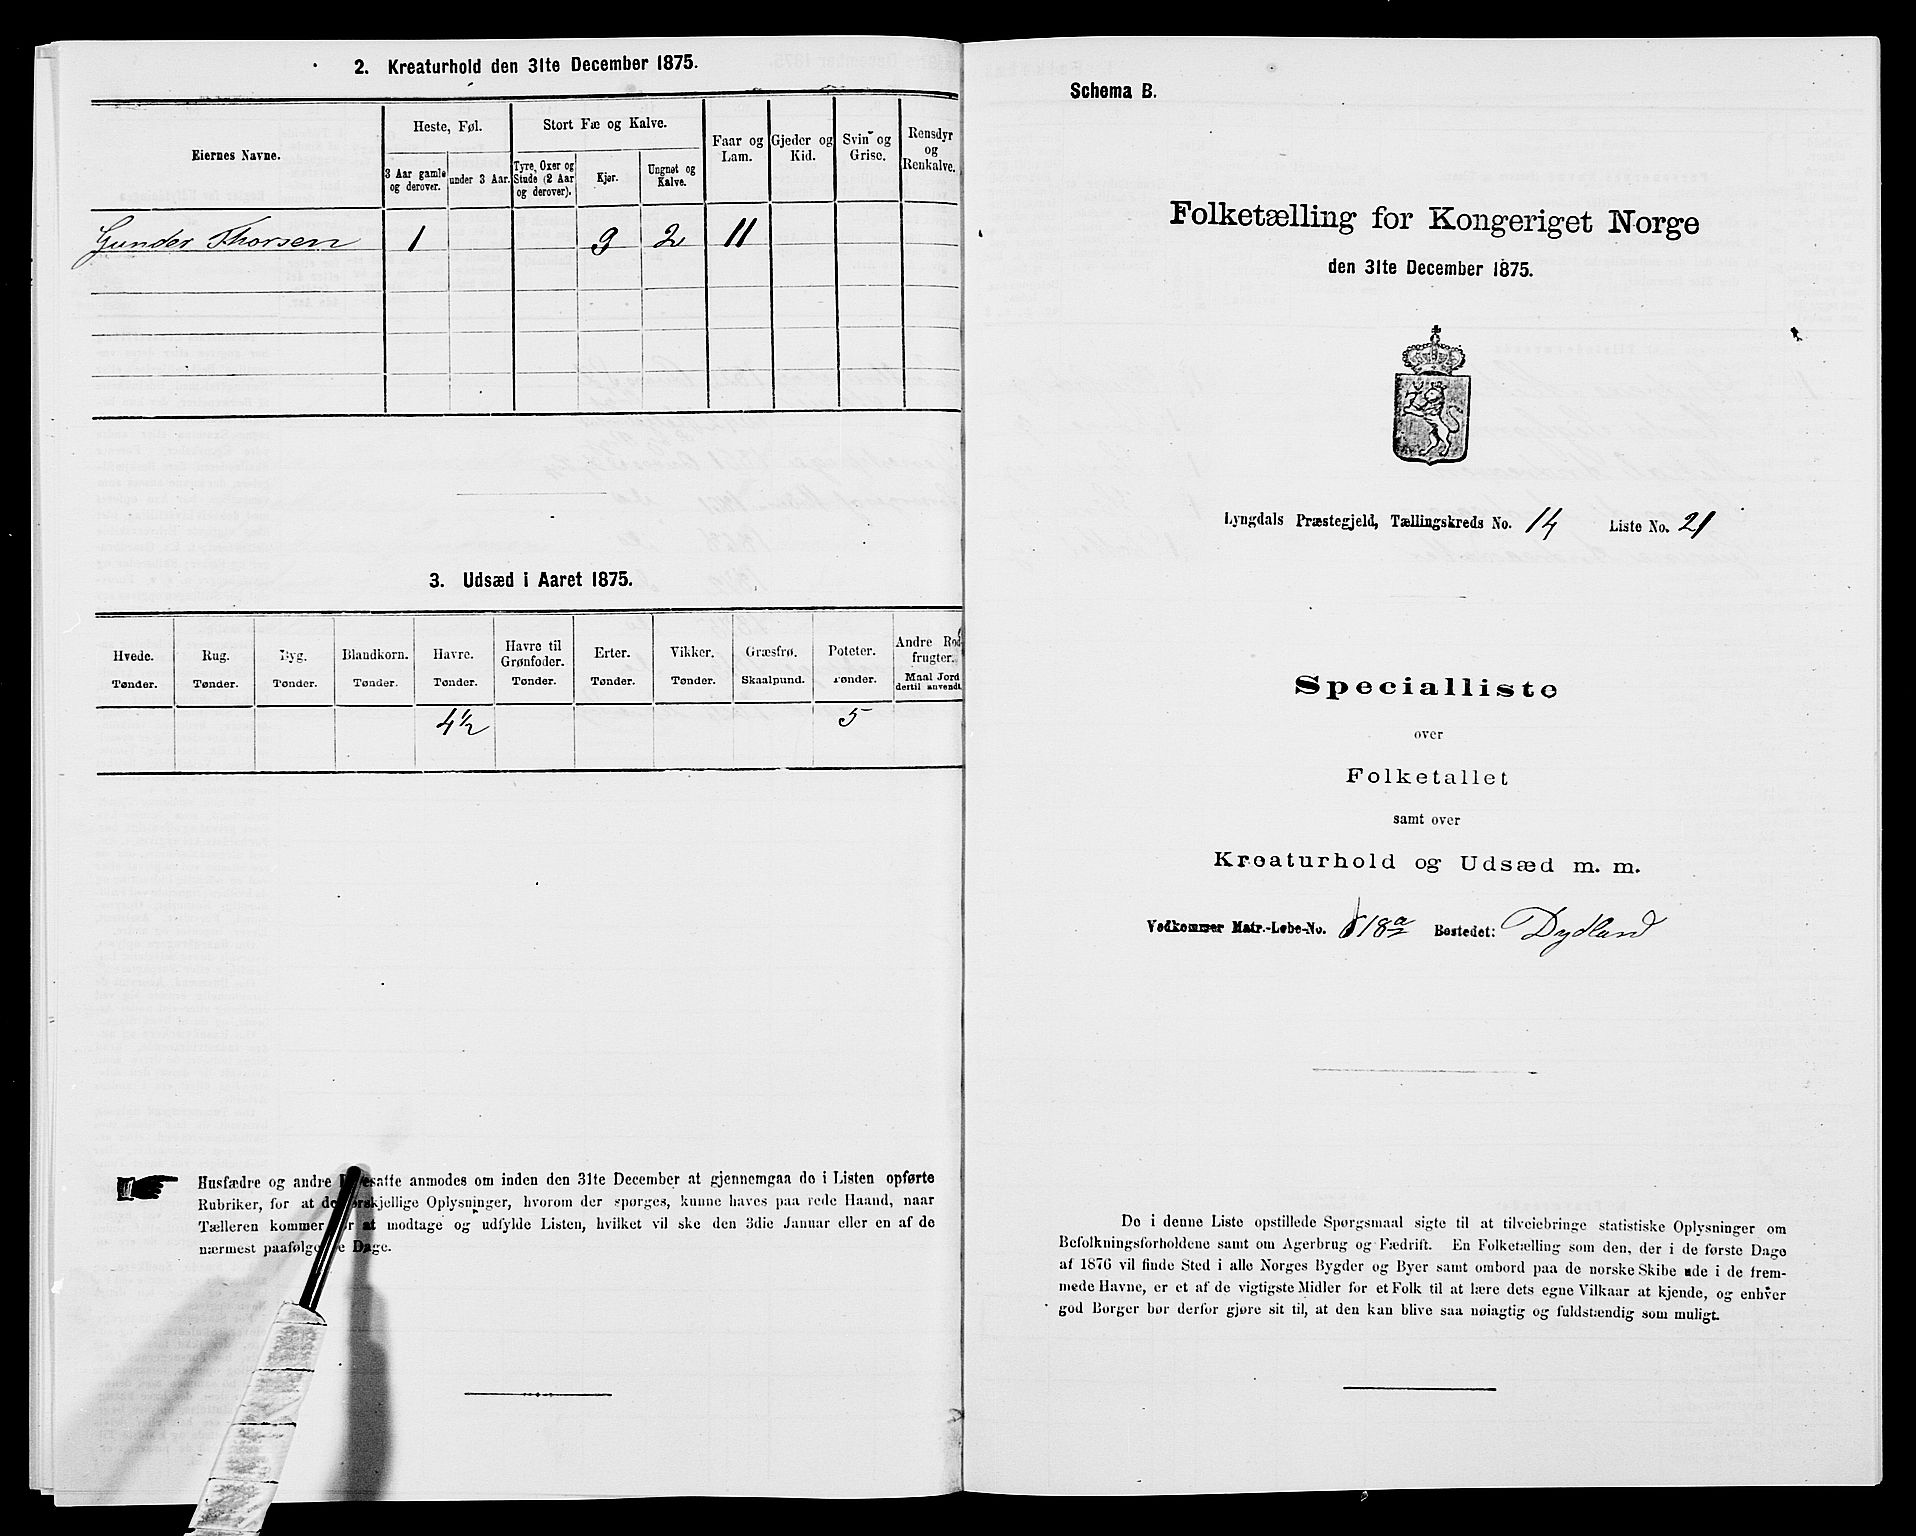 2. Kreaturhold den 31te December 1875.
Eiernes Navne.
Heste, Føl.
Stort Fæ og Kalve.
Faar og Lam.
Gjeder og Kid.
Svin og Grise.
Rensdyr og Renkalve.
3 Aar gamle og derover.
under 3 Aar.
Tyre, Oxer og Stude (2 Aar og derover).
Kjør.
Ungnøt og Kalve.
Gunder Thorsen 1 9 2 11
3. Udsæd i Aaret 1875.
Hvede. Rug. Byg. Blandkorn. Havre. Havre til Grønfoder. Erter. Vikker. Græsfrø. Poteter. Andre Rodfrugter.
Tønder. Tønder. Tønder. Tønder. Tønder. Tønder. Tønder. Tønder. Skaalpund. Tønder. Maal Jord dertil anvendt.
4 1/2 5
Husfædre og andre anmodes om inden den 31te December at gjennemgaa de i Listen opførte
Rubriker, for at de forskjellige Oplysninger, hvorom der spørges, kunne haves paa rede Haand, naar
Tælleren kommer for at modtage og udfylde Listen, hvilket vil ske den 3die Januar eller en af de
nærmest paafølgende Dage.
Schema B.
Folketælling for Kongeriget Norge
den 31te December 1875.
Lyngdals Præstegjeld, Tællingskreds No. 14 Liste No. 21
Specialliste
over
Folketallet
samt over
Kreaturhold og Udsæd m. m.
Vedkommer Matr.-Løbe-No. 118a Bostedet: Dydland
De i denne Liste opstillede Spørgsmaal sigte til at tilveiebringe statistiske Oplysninger om
Befolkningsforholdene samt om Agerbrug og Fædrift. En Folketælling som den, der i de første Dage
af 1876 vil finde Sted i alle Norges Bygder og Byer samt ombord paa de norske Skibe ude i de frem-
mede Havne, er et af de vigtigste Midler for et Folk til at lære dets egne Vilkaar at kjende, og enhver
god Borger bør derfor gjøre sit til, at den kan blive saa nøiagtig og fuldstændig som muligt.